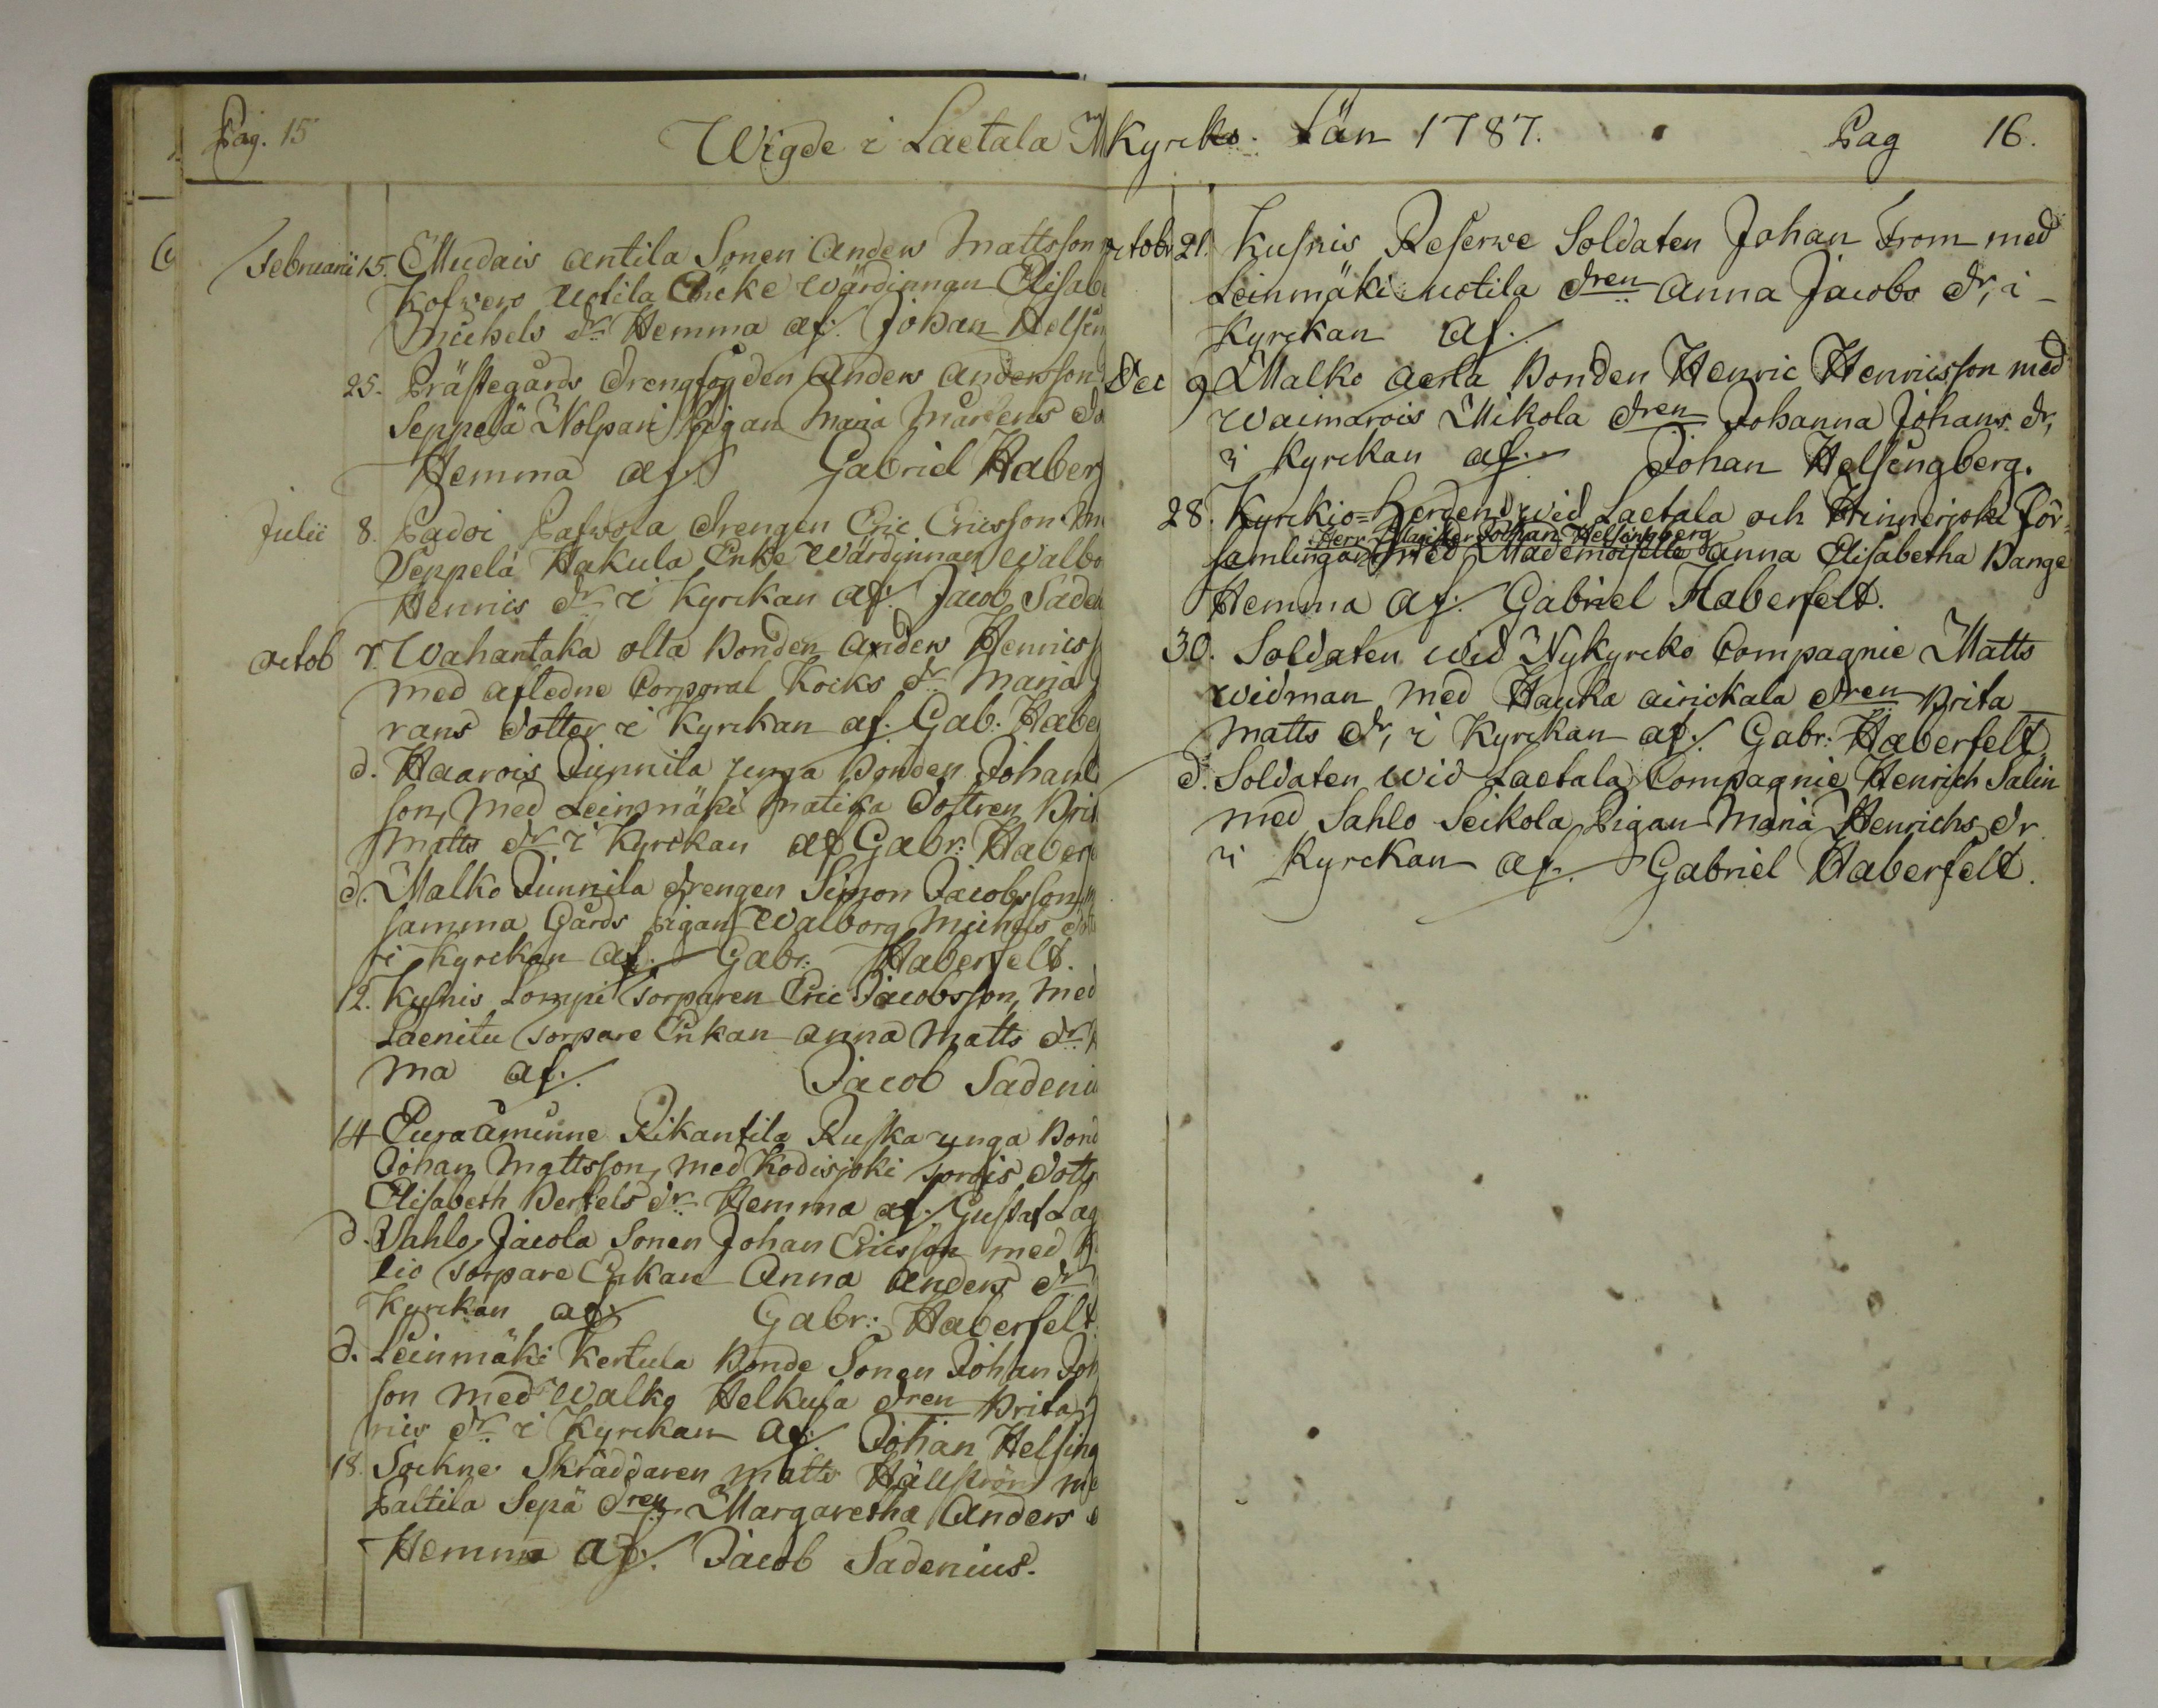 Pag. 15
Wigde i Laetala M
Februarii 15. Mudais Antila Sonen Anders Mattsson
Kofwero Uotila Encke Wärdinnan Elisab
Michels dr Hemma af. Johan Helsin
25. Prästegårds Drengfogden Anders Andersson
Seppelä Nolpari Pigan Maria Mårtens do
Hemma af. Gabriel Haber
Julii 8. Padoi Pafwola Drengen Eric Ericsson
Seppelä Hakula Enke Wärdinnan Walbo
Henrics dr i Kyrckan af. Jacob Sade
Octob 7. Wahantaka olta Bonden Anders Henrics
med afledne Corporal Kocks dr Maria
rans dotter i Kyrckan af. Gab. Habe
d. Haarois Junnila unga Bonden Johan
son, med Leinmäki Matika dottren Bri
Matts dr i Kyrckan af Gabr: Haber
d. Malko Junnila drengen Simon Jacobsson
samma Gårds Pigan Walborg Michels dot
i Kyrckan af. Gabr. Haberfelt.
12. Kusnis Lompi Torparen Eric Jacobsson, med
Laenitu Torpare Enkan Anna Matts dr
ma af. Jacob Sadeni
14 Euraåminne Rikantila Ruska unga Bond
Johan Mattsson, med Kodisjoki dott
Elisabeth Bertels dr Hemma af. Gustaf Lag
d. Vahlo Jacola Sonen Johan Ericsson med
lio Torpare Enkan Anna Anders dr
Kyrckan af. Gabr: Haberfelt.
d. Leinmäki Kertula Bonde Sonen Johan Joh
son med Walko Helkula dren Brita
rics dr i Kyrckan af. Johan Helsing
18. Sockne Skräddaren Matts Hällström me
Paltila Sepä dren Margaretha Anders
Hemma af. Jacob Sadenius.
Kyrcko. Län 1787. Pag 16.
Octobr 21. Kusnis Reserwe Soldaten Johan From med
Leinmäki Uotila dren Anna Jacobs dr, i
Kyrckan af.
Dec 9 Malko Aerla Bonden Henric Henricsson med
Waimarois Mikola dren Johanna Johans dr,
i Kyrckan af. Johan Helsingberg.
28. Kyrckio=Herden wid Laetala och Hinnerjoki För-
Herr Magister Johan Helsingberg
samlingar med Mademoiselle Anna Elisabetha Bange
Hemma af. Gabriel Haberfelt.
30. Soldaten wid Nykyrcko Compagnie Matts
Widman med Hauka airickala dren Brita
Matts dr, i Kyrckan af. Gabr: Haberfelt.
d. Soldaten wid Laetala Compagnie Henrich Salin
med Sahlo Seikola Pigan Maria Henrichs dr
i Kyrckan af. Gabriel Haberfelt.